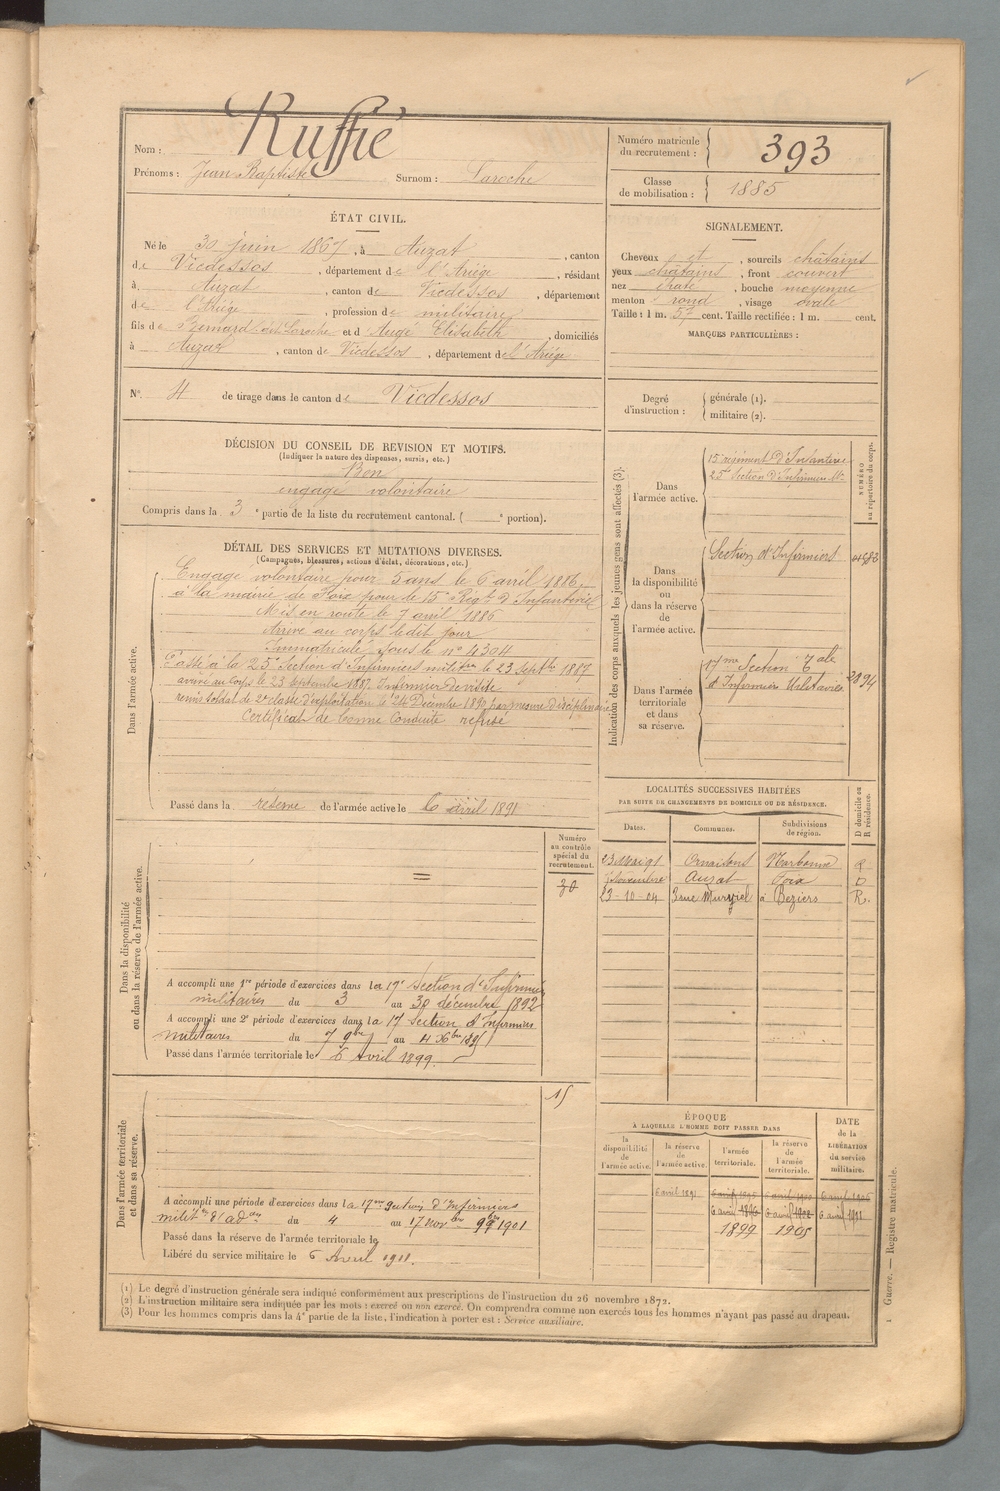 Ruffié
Nom :
Prénoms : Jean Baptiste Surnom : Laroche
Numéro matricule du recrutement : 393
Classe de mobilisation : 1885
ÉTAT CIVIL.
Né le 30 juin 1867, à Auzat, canton
de Vicdessos, département de l'Ariége, résidant
à Auzat, canton de Vicdessos, département
de l'Ariége, profession de militaire
fils de Bernard dit Laroche et d Augé Elisabeth, domiciliés
à Auzat, canton de Vicdessos, département de l'Ariége
SIGNALEMENT.
Cheveux et, sourcils châtains
yeux châtains, front couvert
nez, bouche moyenne
menton rond, visage ovale
Taille : 1 m. 57 cent. Taille rectifiée : 1 m. cent.
MARQUES PARTICULIÈRES :
N° 4 de tirage dans le canton de Vicdessos
Degré d'instruction : générale (1).
militaire (2).
DÉCISION DU CONSEIL DE REVISION ET MOTIFS.
(Indiquer la nature des dispenses, sursis, etc.)
Bon
engagé volontaire
Compris dans la 3e partie de la liste du recrutement cantonal. ( e portion).
DÉTAIL DES SERVICES ET MUTATIONS DIVERSES.
(Campagnes, blessures, actions d'éclat, décorations, etc.)
Dans l'armée active.
Engagé volontaire pour 5 ans le 6 avril 1886
à la mairie de Foix pour le 15e Régt d'Infanterie
Mis en route le 7 avril 1886
Arrivé au corps ledit jour
Immatriculé sous le n° 4304
Passé à la 25e Section d'Infirmiers militres le 23 Septbre 1887
arrivé au corps le 23 septembre 1887. Infirmier de visite
remis soldat de 2e classe d'exploitation le 24 Décembre 1890 par mesure disciplinaire
Certificat de bonne Conduite refusé
Passé dans la réserve de l'armée active le 6 avril 1891
Indication des corps auxquels les jeunes gens sont affectés (3).
NUMÉRO au répertoire du corps.
Dans l'armée active.
15e régiment d'Infanterie
25e Section d'Infirmiers Mres
Dans la disponibilité ou dans la réserve de l'armée active.
Section d'Infirmiers
Dans l'armée territoriale et dans sa réserve.
17me Section Tale
d'Infirmiers Militaires 2894
LOCALITÉS SUCCESSIVES HABITÉES
PAR SUITE DE CHANGEMENTS DE DOMICILE OU DE RÉSIDENCE.
Dates. Communes. Subdivisions de région. D domicile ou R résidence.
23 Mai 91 Ornaisons Narbonne R
Novembre Auzat Foix D
23-10-04 3 rue Murviel à Beziers R.
Dans la disponibilité ou dans la réserve de l'armée active.
Numéro au contrôle spécial du recrutement.
30
A accompli une 1re période d'exercices dans la 17e Section d'Infirmiers
militaires du 3 au 30 décembre 1892
A accompli une 2e période d'exercices dans la 17 Section d'Infirmiers
militaires du 7 9bre au 4 Xbre 1895
Passé dans l'armée territoriale le 6 Avril 1899.
Dans l'armée territoriale et dans sa réserve.
15
A accompli une période d'exercices dans la 17eme Section d'Infirmiers
militres d'adon du 4 au 17 novbre 1901
Passé dans la réserve de l'armée territoriale le
Libéré du service militaire le 6 Avril 1911.
ÉPOQUE
À LAQUELLE L'HOMME DOIT PASSER DANS
la disponibilité de l'armée active. la réserve de l'armée active. l'armée territoriale. la réserve de l'armée territoriale.
DATE de la LIBÉRATION du service militaire.
6 avril 1891 6 avril 1895 6 avril 1900 6 avril 1906
6 avril 1896 6 avril 1902 6 avril 1911
1899 1905
(1) Le degré d'instruction générale sera indiqué conformément aux prescriptions de l'instruction du 26 novembre 1872.
(2) L'instruction militaire sera indiquée par les mots : exercé ou non exercé. On comprendra comme non exercés tous les hommes n'ayant pas passé au drapeau.
(3) Pour les hommes compris dans la 4e partie de la liste, l'indication à porter est : Service auxiliaire.
1 Guerre. — Registre matricule.